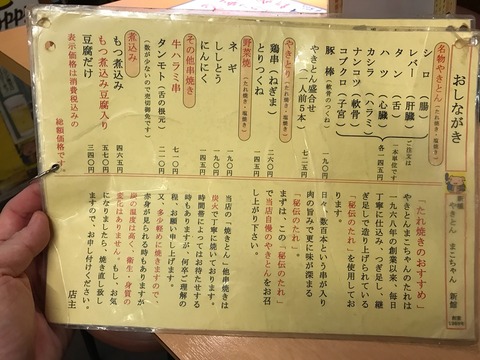 おしながき
名物やきとん(たれ焼き・塩焼き)
シロ(腸)
レバー(肝臓)
タン(舌)
ハツ(心臓)
カシラ(ハラミ)
ナンコツ(軟骨)
コブクロ(子宮)
ご注文は
一本単位です
各一四五円
豚棒(軟骨のつくね)
一九〇円
やきとん盛合せ
一人前5本
七二五円
やきとり(たれ焼き・塩焼き)
鶏串(ねぎま)
二六〇円
とりつくね
一四五円
野菜焼(たれ焼き・塩焼き)
ネギ
一九〇円
ししとう
一四五円
にんにく
一九〇円
その他串焼き
牛ハラミ串
七一〇円
タンモト(舌の根元)
二一〇円
(数が少ないので売切御免です)
煮込み
もつ煮込み
四六五円
もつ煮込み豆腐入り
五七〇円
豆腐だけ
三四〇円
表示価格は消費税込みの
総額価格です。
新橋
やきとん まこちゃん 新館
創業
1968年
「たれ焼きのおすすめ」
やきとんまこちゃんのたれは
一九六八年の創業以来、毎日
丁寧に仕込み・つぎ足し、継
ぎ足しで造り上げられている
「秘伝のたれ」を使用してお
ります。
日々、数百本という串が入り
肉の旨みで更に味が深まる
「秘伝のたれ」。
まずは、この「秘伝のたれ」
で当店自慢のやきとんをお召
し上がり下さい。
当店の「焼きとん」他串焼きは
炭火で丁寧に焼いております。
時間帯によってはお待たせする
時もありますが、何卒ご理解の
程、お願い申し上げます。
又、多少軽めに焼きますので、
赤身が見られる時もありますが
炭の温度は高く、衛生・身質の
変化はありません。もし、お気
になりましたら、焼き直し致し
ますので、お申し付けください。
店主